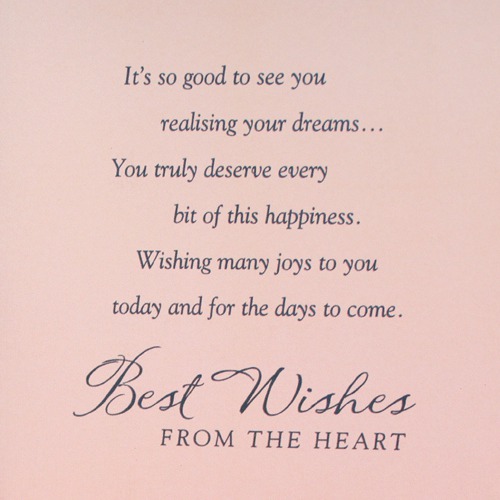 It's so good to see you
realising your dreams...
You truly deserve every
bit of this happiness.
Wishing many joys to you
today and for the days to come.
Best Wishes
FROM THE HEART